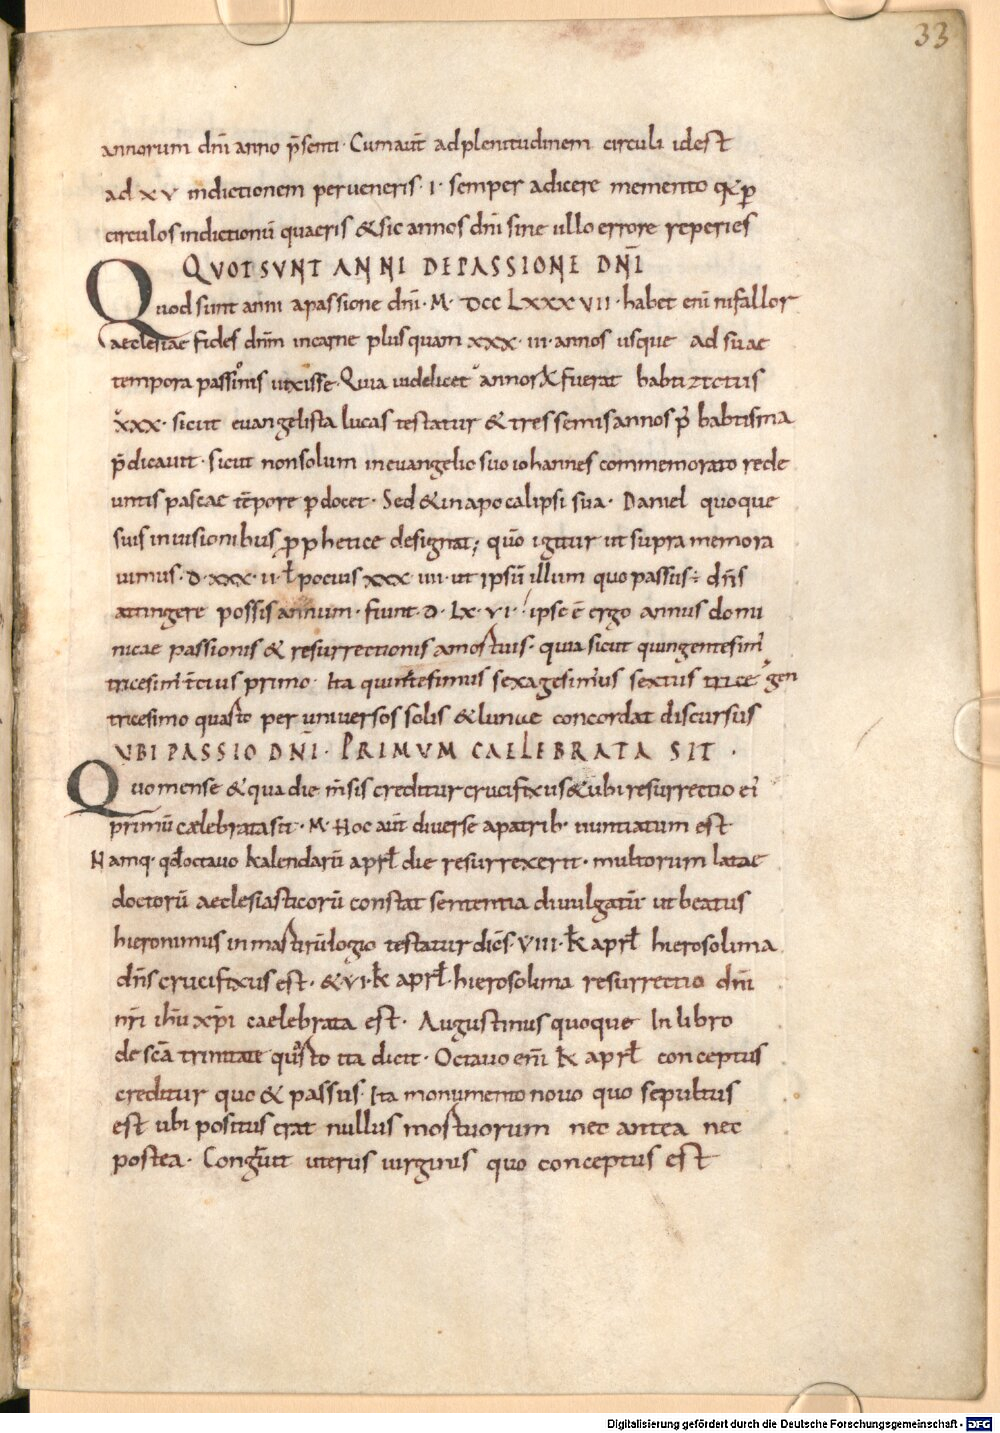 33
annorum dn̄i anno p̄senti · Cum aut̄ ad plenitudinem circuli id est
ad xv indictionem perueneris · I · semper adicere memento q̄ p̱
circulos indictionū quaeris & sic annos dn̄i sine ullo errore reperies
QUOT SUNT ANNI DE PASSIONE DN̄I
Quod sunt anni a passione dn̄i · M · DCCLXXXVII · habet enī ni fallor
aeclesiae fides dn̄m in carne plus quam xxx · iii · annos usque ad suae
tempora passionis uixisse · Quia uidelicet annorum fuerat babtizatus
xxx · sicut euangelista lucas testatur & tres semis annos p̄ babtisma
p̄dicauit · sicut non solum in euangelio suo iohannes commemorato rede
untis pascae tēpore p̱docet · Sed & in apocalipsi sua · Daniel quoque
suis in uisionibus p̱phetice designat; quō igitur ut supra memora
uimus · d · xxx · ii · ł potius xxx · iiii · ut ipsū illum quo passus ÷ dn̄s
attingere possis annum · fiunt · D · Lx · VI · ipse ē ergo annus domi
nicae passionis & resurrectionis a mortuis · quia sicut quingentesim'
tricesim' t̄cius primo · Ita quintesimus sexagesimus sextus trice gen
tricesimo quarto per uniuersos solis & lunae concordat discursus
UBI PASSIO DN̄I · PRIMUM CAELEBRATA SIT ·
Quo mense & qua die m̄sis creditur crucifixus & ubi resurrectio ei'
primū caelebrata sit · M · Hoc aut̄ diuerse a patrib · nuntiatum est
Namq · qđ octauo kalendarū aprł die resurrexerit · multorum latae
doctorū aeclesiasticorū constat sententia diuulgatur ut beatus
hieronimus in martirulogio testatur dic̄s · VIII · k̄ł aprł hierosolima
dn̄s crucifixus est · & VI · k̄ł aprł · hierosolima resurrectio dn̄i
nr̄i ih̄u xp̄i caelebrata est · Augustinus quoque In libro
de scā trinitate quarto ita dicit · Octauo enī k̄ł aprł conceptus
creditur quo & passus · Ita monumento nouo quo sepultus
est ubi positus erat nullus mortuorum nec antea nec
postea · Congruit uterus uirginis quo conceptus est
Digitalisierung gefördert durch die Deutsche Forschungsgemeinschaft - DFG